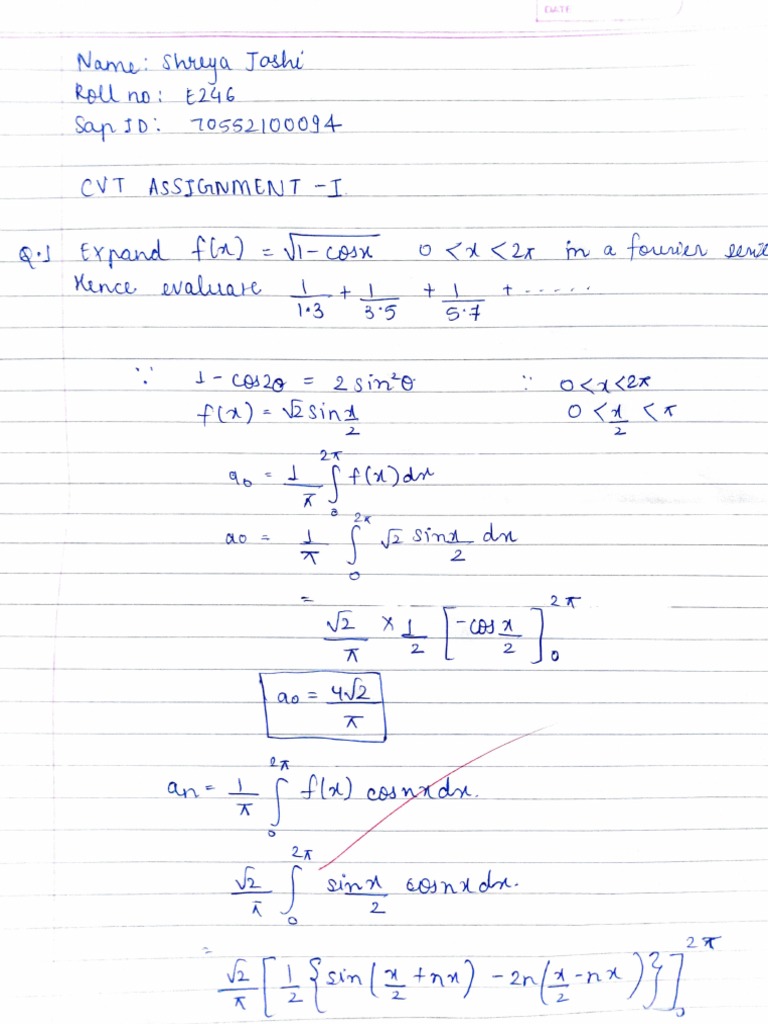 DATE
Name: Shreya Joshi
Roll no: E246
Sap ID: 70552100094
CVT ASSIGNMENT - I
Q.1 Expand f(x) = √(1-cosx) 0 < x < 2π in a fourier serie
Hence evaluate 1/1·3 + 1/3·5 + 1/5·7 + ......
∵ 1 - cos2θ = 2 sin²θ ∵ 0<x<2π
f(x) = √2 sin x/2 0 < x/2 < π
a₀ = 1/π ∫₀^2π f(x) dx
a₀ = 1/π ∫₀^2π √2 sin x/2 dx
= √2/π × 1/2 [-cos x/2]₀^2π
a₀ = 4√2/π
aₙ = 1/π ∫₀^2π f(x) cosnx dx.
√2/π ∫₀^2π sin x/2 cosnx dx.
= √2/π [1/2 {sin(x/2 + nx) - 2n(x/2 - nx)}]₀^2π